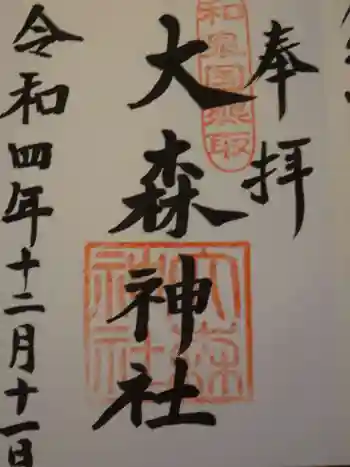 奉拝
大森神社
令和四年十二月十一日
大森
神社